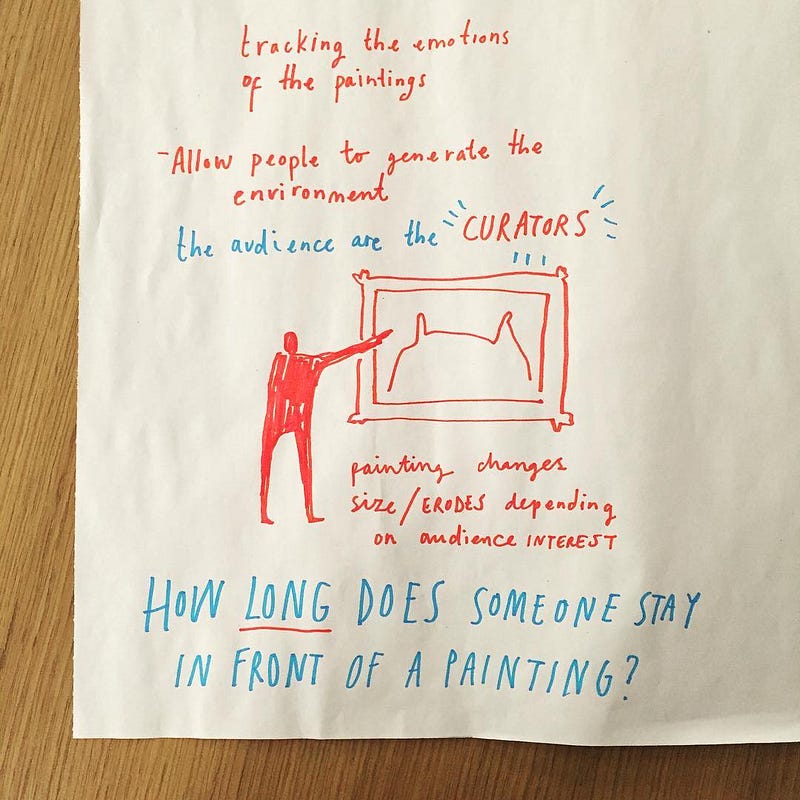 tracking the emotions
of the paintings
-Allow people to generate the
environment
the audience are the CURATORS
painting changes
size/ERODES depending
on audience INTEREST
HOW LONG DOES SOMEONE STAY
IN FRONT OF A PAINTING?